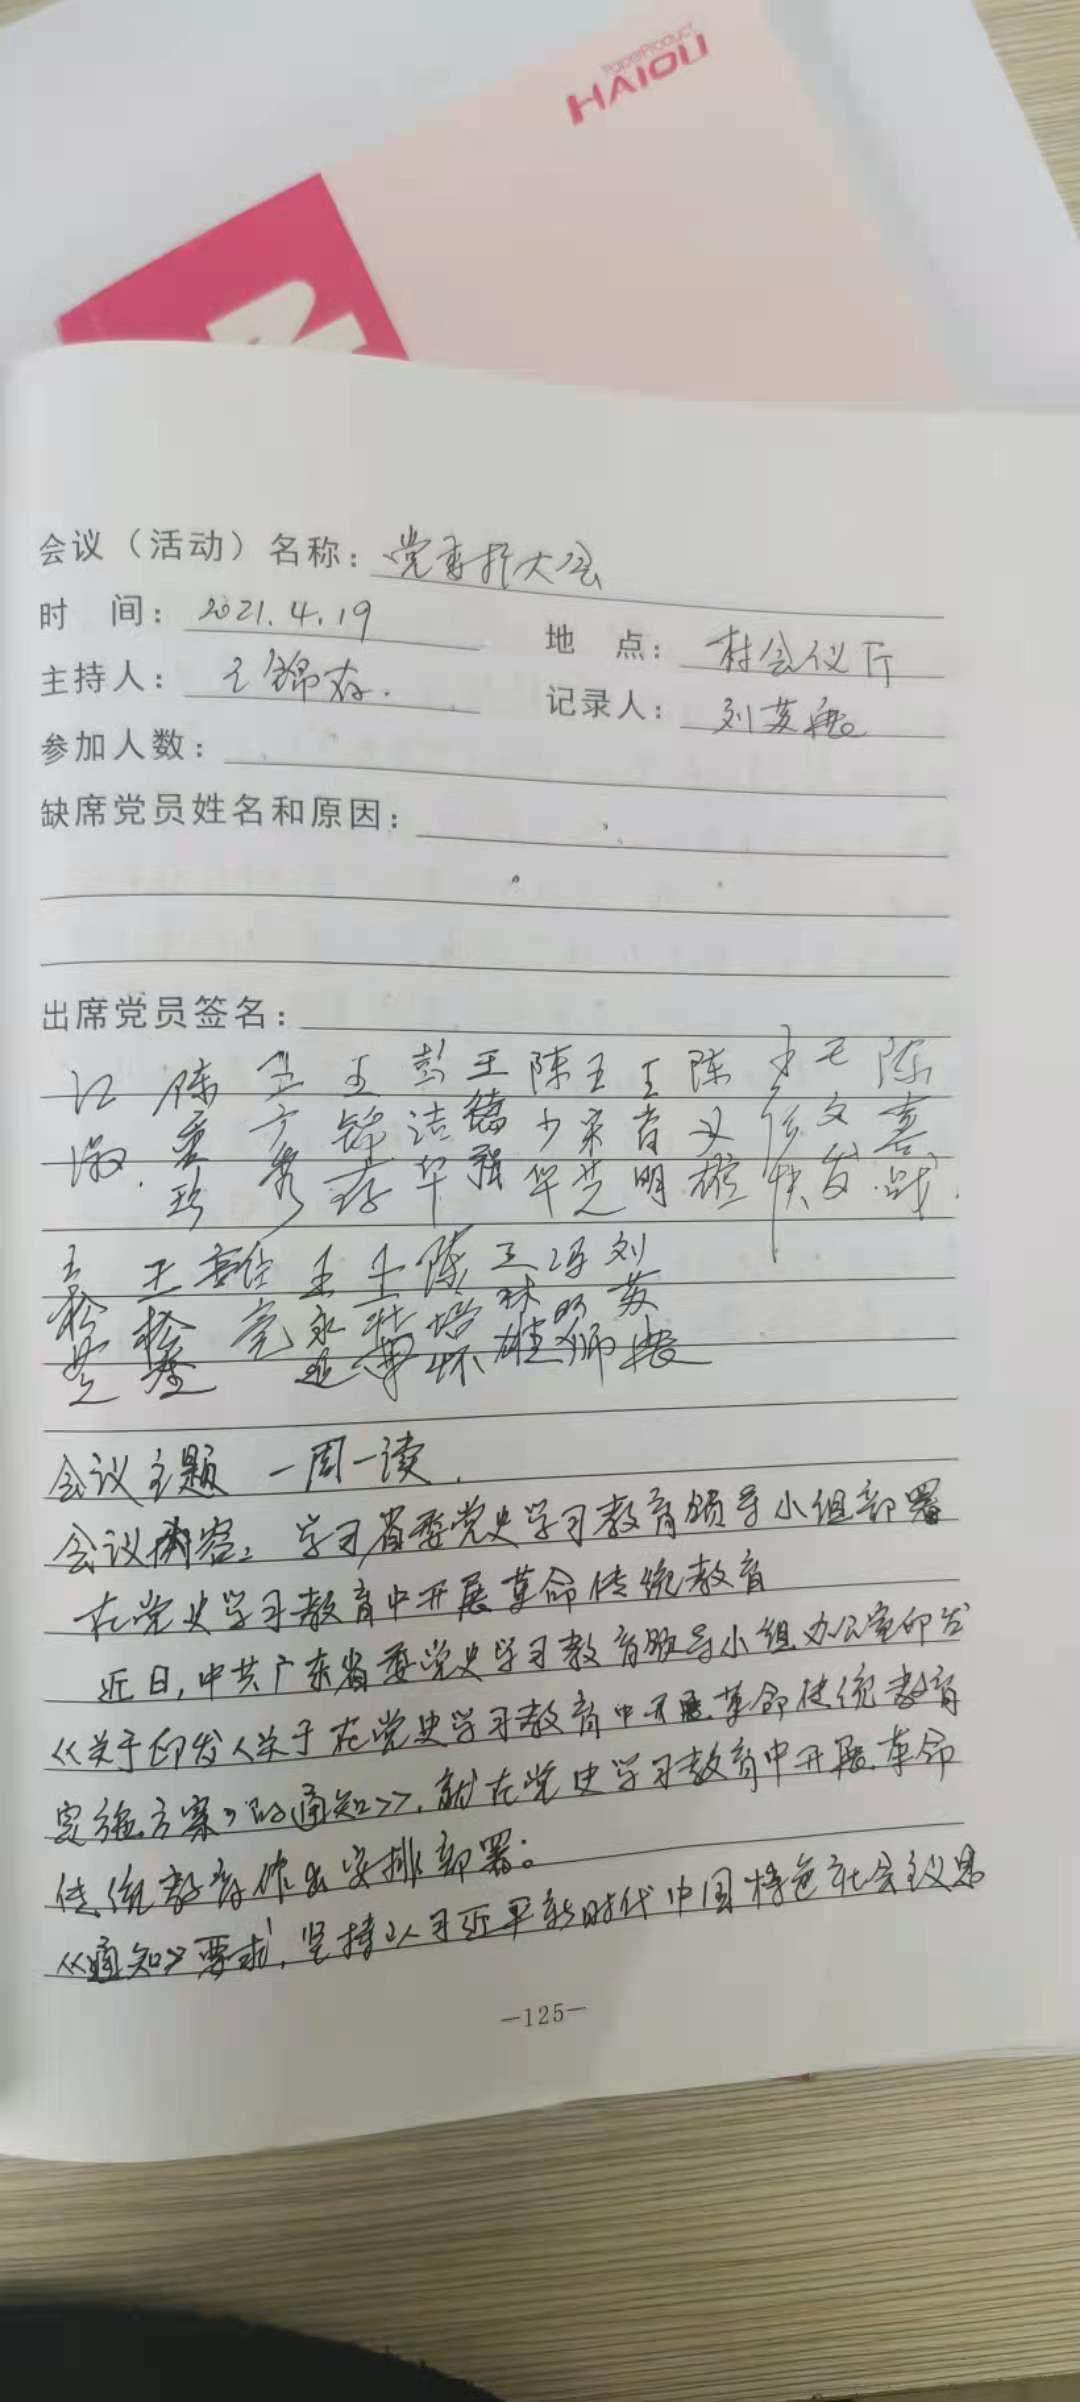 PaperProduct
HAIOU
会议（活动）名称：党委扩大会
时 间：2021.4.19
地 点：村会议厅
主持人：王锦存.
记录人：刘苏
参加人数：
缺席党员姓名和原因：
出席党员签名：
江 陈 王 王 彭 王 陈 王 王 陈 王 陈
淑 重 方 锦 洁 德 少 宋 育 义 文 喜
珍 秀 存 华 强 华 芝 明 雄 发 战
王 王 王 王 陈 王 冯 刘
松 松 亮 永 壮 培 林 苏
芝 怀 雄 师
会议主题 一周一读.
会议内容：学习省委党史学习教育领导小组部署
在党史学习教育中开展革命传统教育
近日，中共广东省委党史学习教育领导小组办公室印发
《关于印发〈关于在党史学习教育中开展革命传统教育
实施方案〉的通知》，就在党史学习教育中开展革命
传统教育作出安排部署：
《通知》要求，坚持以习近平新时代中国特色社会主义思
—125—